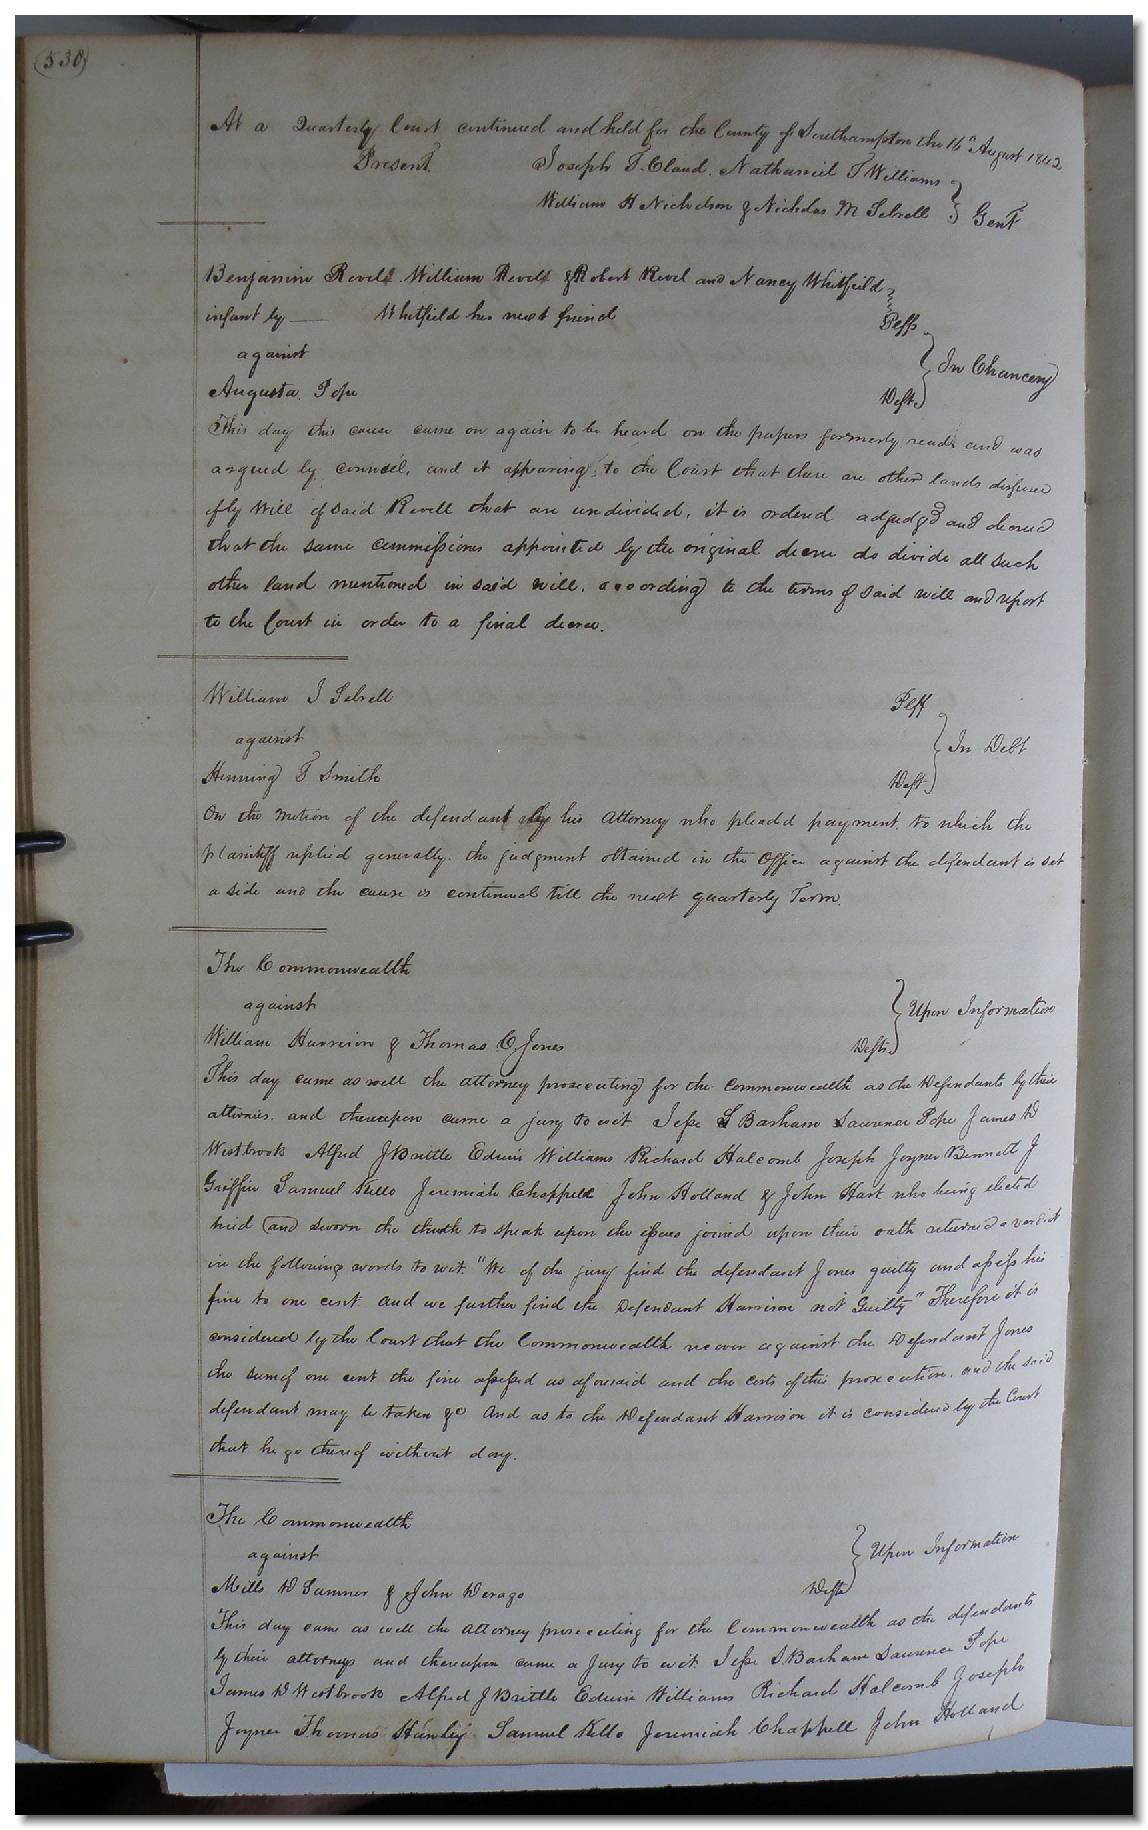 (530)
At a Quarterly Court continued and held for the County of Southampton the 16th August 1842
Present. Joseph T. Claud. Nathaniel T Williams
William H Nicholson & Nicholas M Sebrell Gent
Benjamin Revell William Revell & Robert Revel and Nancy Whitfield
infant by Whitfield her next friend Pltfs
against In Chancery
Augusta Pope Deft.
This day this cause came on again to be heard on the papers formerly read and was
argued by counsel, and it appearing to the Court that there are other lands disposed
of by Will of said Revell that are undivided, it is ordered adjudgd and decreed
that the same commissioners appointed by the original decree do divide all such
other land mentioned in said will, according to the terms of said will and report
to the Court in order to a final decree.
William J Sebrell Pltf
against In Debt
Henning T Smith Deft.
On the motion of the defendant by his attorney who pleadd payment, to which the
plaintiff replied generally. the judgment obtained in the Office against the defendant is set
a side and the cause is continued till the next quarterly Term.
The Commonwealth
against Upon Information
William Harrison & Thomas C Jones Defts.
This day came as well the attorney prosecuting for the Commonwealth as the Defendants by their
attornies. and thereupon came a jury to wit Jesse S Barham Lawrence Pope James D
Westbrook Alfred J Brittle Edwin Williams Richard Halcomb Joseph Joyner Bennett J
Griffin Samuel Kello Jeremiah Chappell John Holland & John Hart who being elected
tried and sworn the truth to speak upon the issues joined upon their oath returned a verdict
in the following words to wit. "We of the jury find the defendant Jones guilty and assess his
fine to one cent and we further find the Defendant Harrison not Guilty" Therefore it is
considered by the Court that the Commonwealth recover against the Defendant Jones
the sum of one cent the fine assessed as aforesaid and the costs of this prosecution. and the said
defendant may be taken &c And as to the Defendant Harrison it is considered by the Court
that he go thereof without day.
The Commonwealth
against Upon Information
Mills D Sumner & John Derago Defts
This day came as well the attorney prosecuting for the Commonwealth as the defendants
by their attorneys and thereupon came a Jury to wit. Jesse S Barham Lawrence Pope
James D Westbrook Alfred J Brittle Edwin Williams Richard Halcomb Joseph
Joyner Thomas Samuel Kello Jeremiah Chappell John Holland